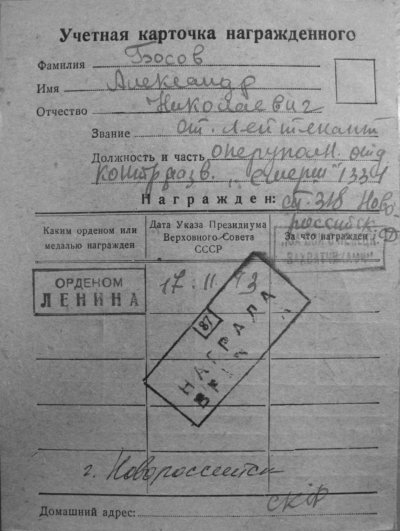 Учетная карточка награжденного
Фамилия Босов
Имя Александр
Отчество Николаевич
Звание ст. лейтенант
Должность и часть оперуполн. отд
контрразв. „Смерш" 1334
Награжден: сп. 318 Ново-
российск.
Каким орденом или медалью награжден
Дата Указа Президиума Верховного Совета СССР
За что награжден
ОРДЕНОМ
ЛЕНИНА
17.11.43
87
НАГРАДА
г. Новороссийск
Домашний адрес: